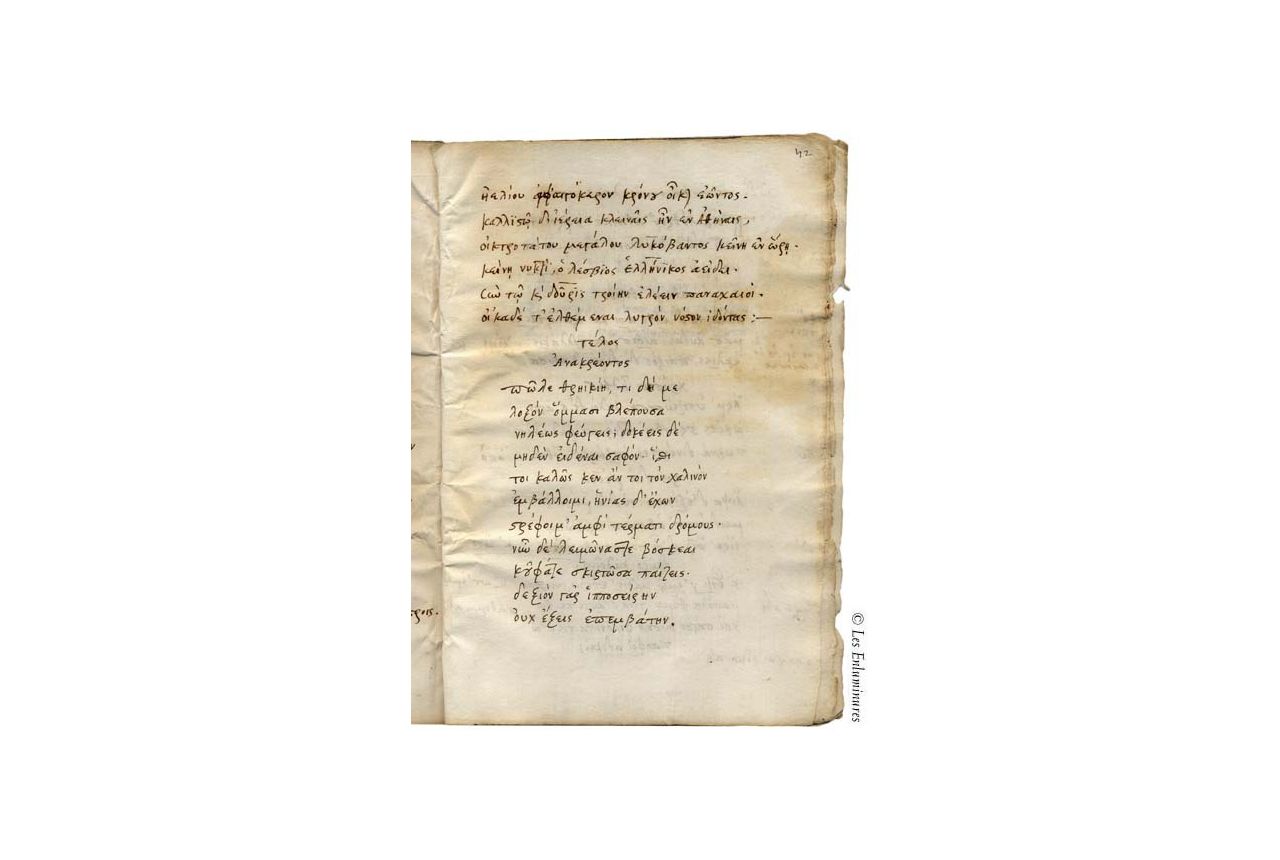 42
ἠελίου αἰγόκερον κρόνου οἶκ ἐῶντος.
καλλιστὼ δ' ἱέρεια κλειναῖς ἦν ἐν Ἀθήναις,
οἰκτροτάτου μεγάλου λυκόβαντος κείνη ἐν ὥρῃ.
κείνῃ νυκτὶ, ὁ λέσβιος ἑλλήνικος ἀείδει.
σὺν τῷ δοῦρις τροίην ἑλέειν παναχαιοί.
οἴκαδέ τ' ἐλθέμεναι λυγρὸν νόσον ἰδόντας :—
τέλος
Ἀνακρέοντος
πῶλε θρηικίη, τι δή με
λοξὸν ὄμμασι βλέπουσα
νηλέως φεύγεις; δοκέεις δέ
μηδὲν εἰδέναι σαφόν· ἴσθι
τοι καλῶς κεν ἄν τοι τὸν χαλινὸν
ἐμβάλλοιμι, ἡνίας δ' ἔχων
στρέφοιμ' ἀμφί τέρματι δρόμους·
νῶ δέ λειμῶνάς τε βόσκεαι
κοῦφά τε σκιρτῶσα παίζεις·
δεξιὸν γὰρ ἱπποσείρην
οὐχ ἕξεις ἐπεμβάτην.
ροις.
© Les Enluminures